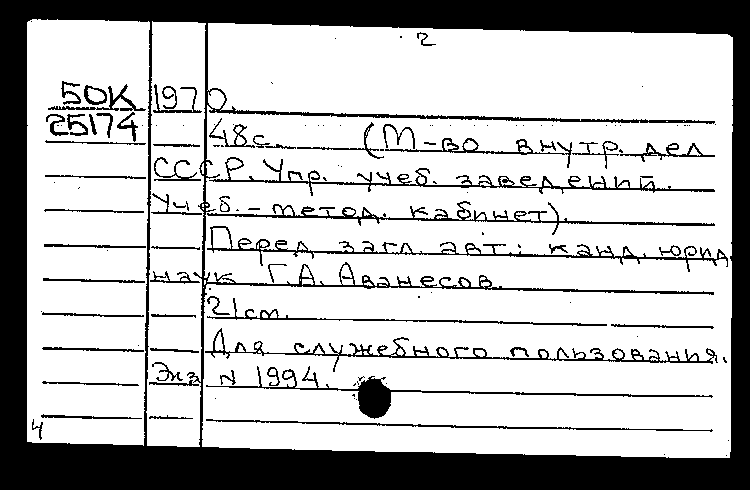 2
50К 1970.
25174 48с. (М-во внутр. дел
СССР. Упр. учеб. заведений.
Учеб.-метод. кабинет).
Перед загл. авт.: канд. юрид.
наук Г.А. Аванесов.
21см.
Для служебного пользования.
Экз N 1994.
4